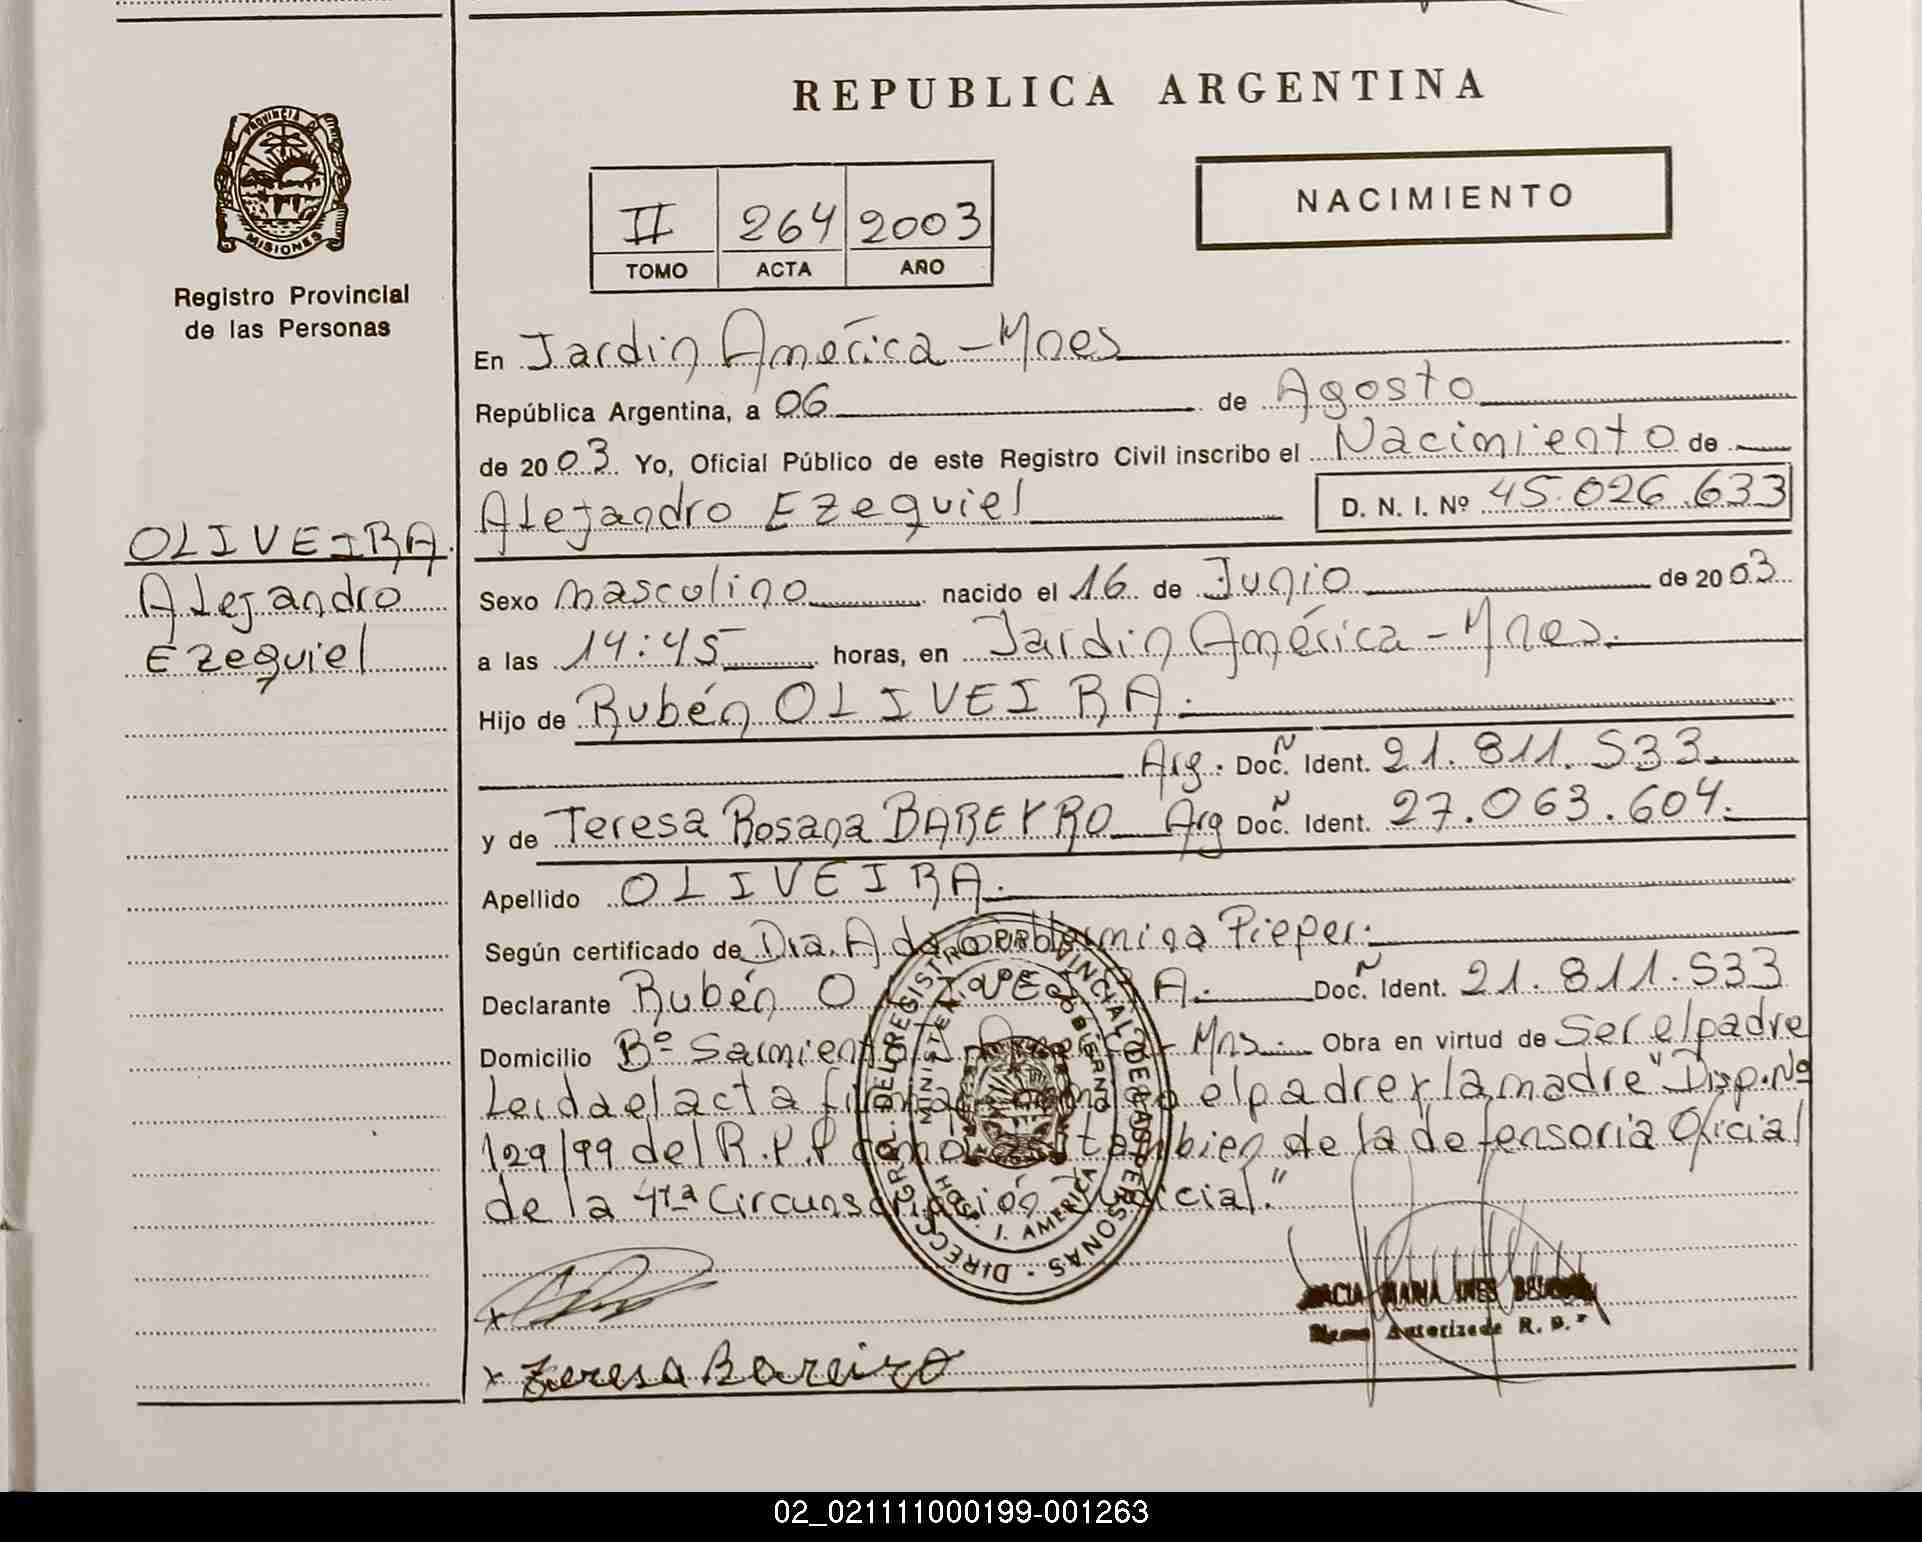 REPUBLICA ARGENTINA
PROVINCIA DE
MISIONES
Registro Provincial
de las Personas
II 264 2003
TOMO ACTA AÑO
NACIMIENTO
En Jardin América - Mnes
República Argentina, a 06 de Agosto
de 2003. Yo, Oficial Público de este Registro Civil inscribo el Nacimiento de
Alejandro Ezequiel D. N. I. Nº 45.026.633
OLIVEIRA.
Alejandro
Ezequiel
Sexo masculino nacido el 16 de Junio de 2003
a las 14:45 horas, en Jardin América - Mnes.
Hijo de Rubén OLIVEIRA.
Arg. Doc. Ident. 21.811.533
y de Teresa Rosana BAREYRO Arg Doc. Ident. 27.063.604.
Apellido OLIVEIRA.
Según certificado de Dra. Ada Pieper.
Declarante Rubén OLIVEIRA. Doc. Ident. 21.811.533
Domicilio Bº Sarmiento Mns. Obra en virtud de Ser el padre
Leida el acta el padre y la madre "Disp. Nº
129/99 del R.P.P como tambien de la defensoria Oficial
de la 4ta Circunscripción Judicial."
DIRECC. GRAL. DEL REGISTRO PROVINCIAL DE LAS PERSONAS
MINISTERIO DE GOBIERNO
HOSP. J. AMERICA
MARIA INES
Autorizada R. P.
x
x Teresa Bareiro
02_021111000199-001263